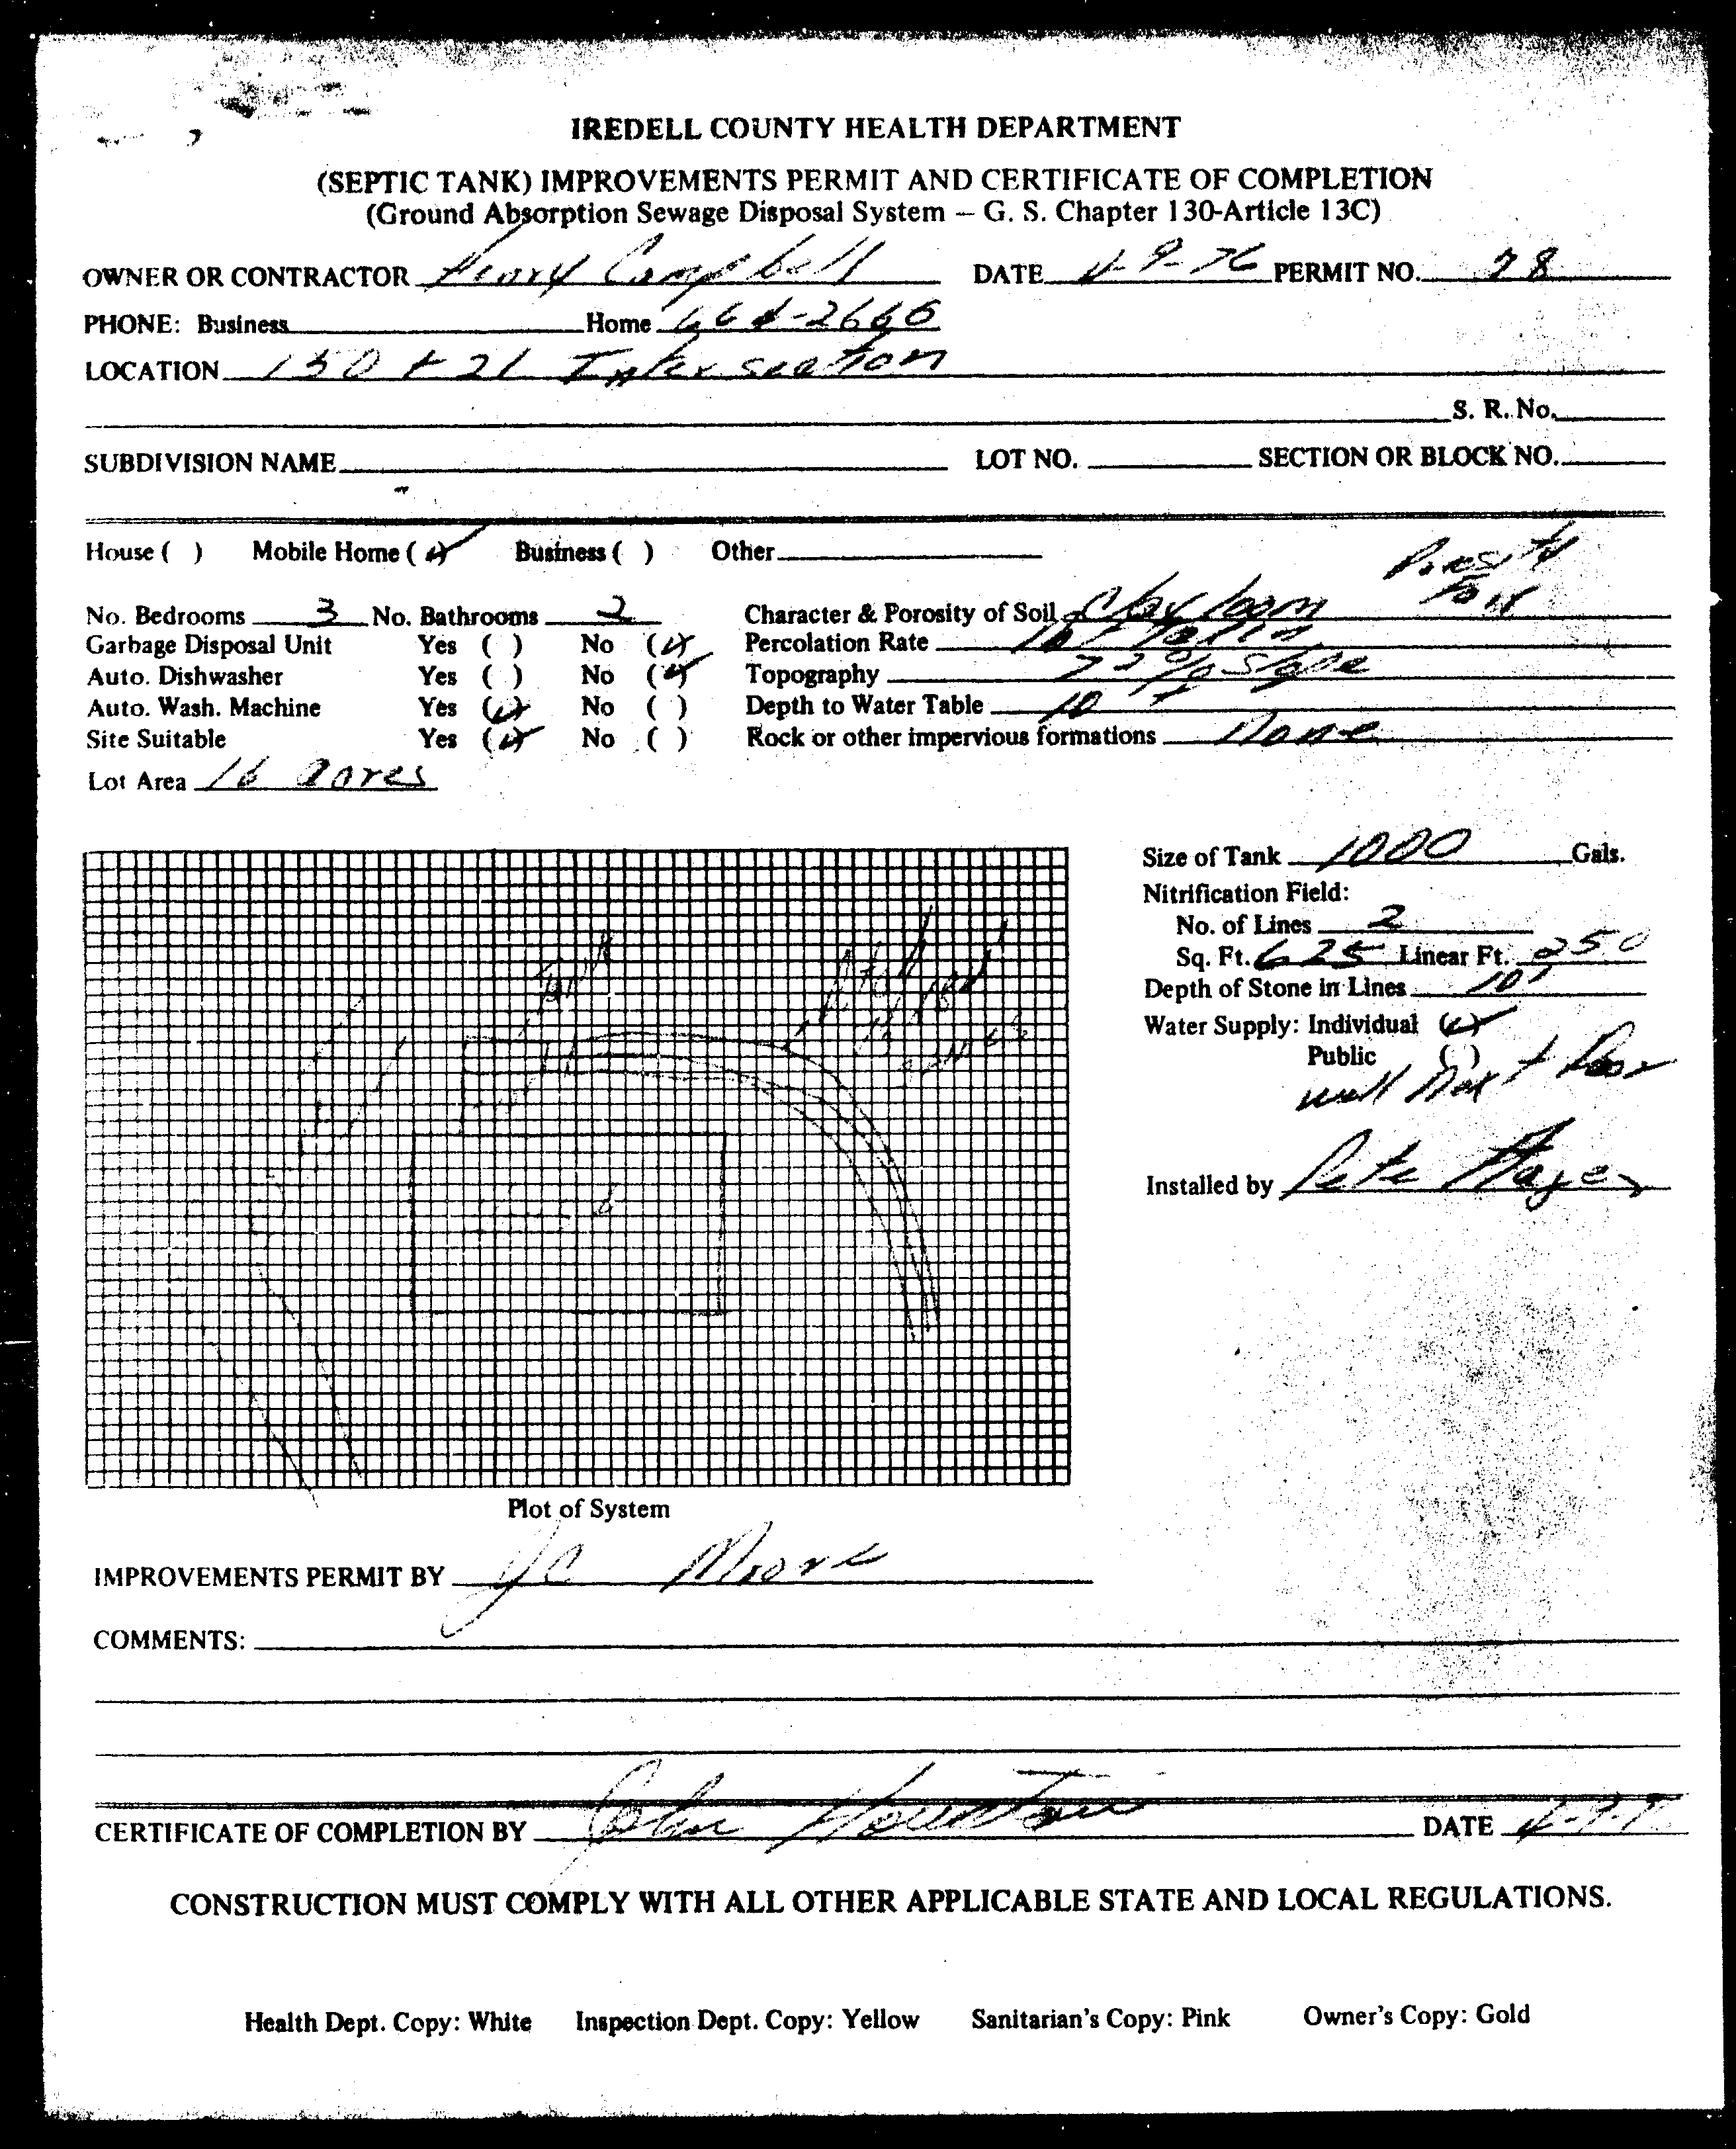 IREDELL COUNTY HEALTH DEPARTMENT
(SEPTIC TANK) IMPROVEMENTS PERMIT AND CERTIFICATE OF COMPLETION
(Ground Absorption Sewage Disposal System – G. S. Chapter 130-Article 13C)
OWNER OR CONTRACTOR Henry Campbell DATE 4-9-76 PERMIT NO. 78
PHONE: Business Home 664-2666
LOCATION 150 + 21 Intersection
S. R. No.
SUBDIVISION NAME LOT NO. SECTION OR BLOCK NO.
House ( ) Mobile Home (✓) Business ( ) Other
No. Bedrooms 3 No. Bathrooms 2 Character & Porosity of Soil Clay loam
Garbage Disposal Unit Yes ( ) No (✓) Percolation Rate
Auto. Dishwasher Yes ( ) No (✓) Topography 72% Slope
Auto. Wash. Machine Yes (✓) No ( ) Depth to Water Table 10'+
Site Suitable Yes (✓) No ( ) Rock or other impervious formations None
Lot Area 16 acres
Size of Tank 1000 Gals.
Nitrification Field:
No. of Lines 2
Sq. Ft. 625 Linear Ft. 250
Depth of Stone in Lines 10'
Water Supply: Individual (✓)
Public ( )
well Next Door
Installed by Pete
Tank
Plot of System
IMPROVEMENTS PERMIT BY JC Moore
COMMENTS:
CERTIFICATE OF COMPLETION BY John Houston DATE 4-9-7
CONSTRUCTION MUST COMPLY WITH ALL OTHER APPLICABLE STATE AND LOCAL REGULATIONS.
Health Dept. Copy: White Inspection Dept. Copy: Yellow Sanitarian's Copy: Pink Owner's Copy: Gold